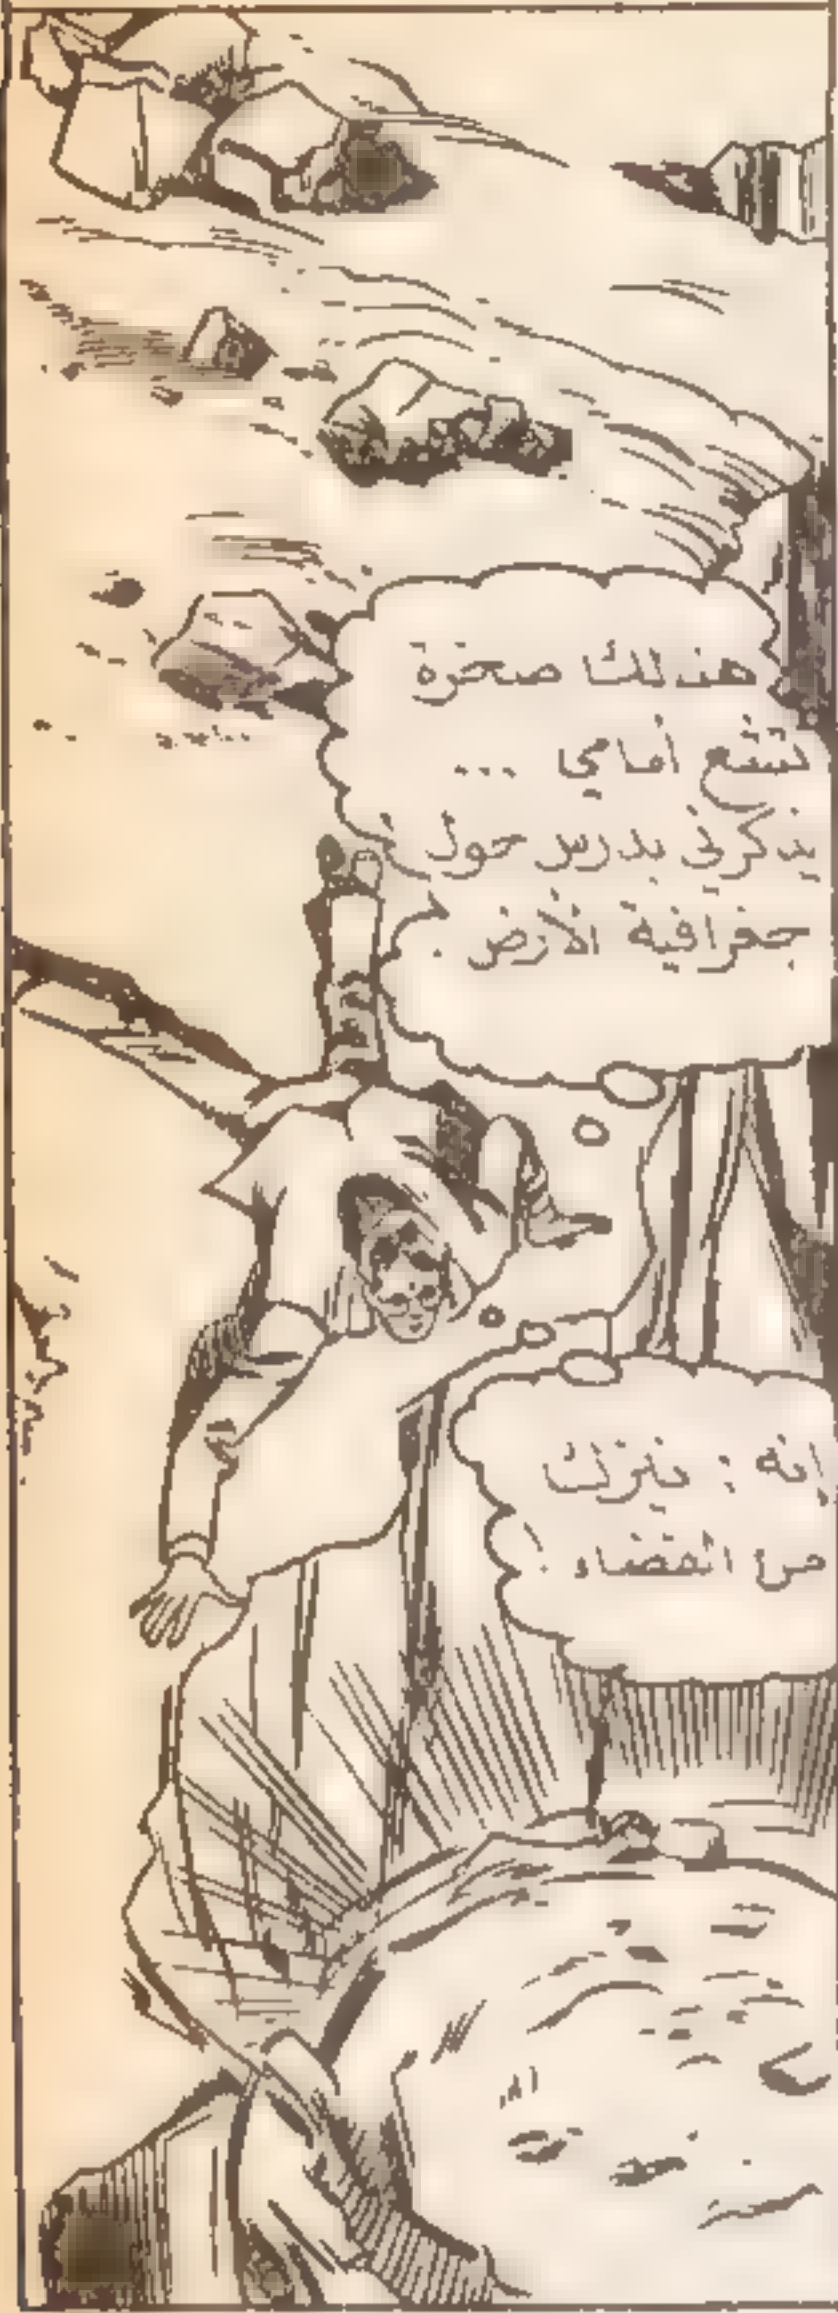 هنالك صخرة
تشع أمامي ...
يذكرني بدرس حول
جغرافية الأرض .
إنه : ينزلق
من الفضاء !